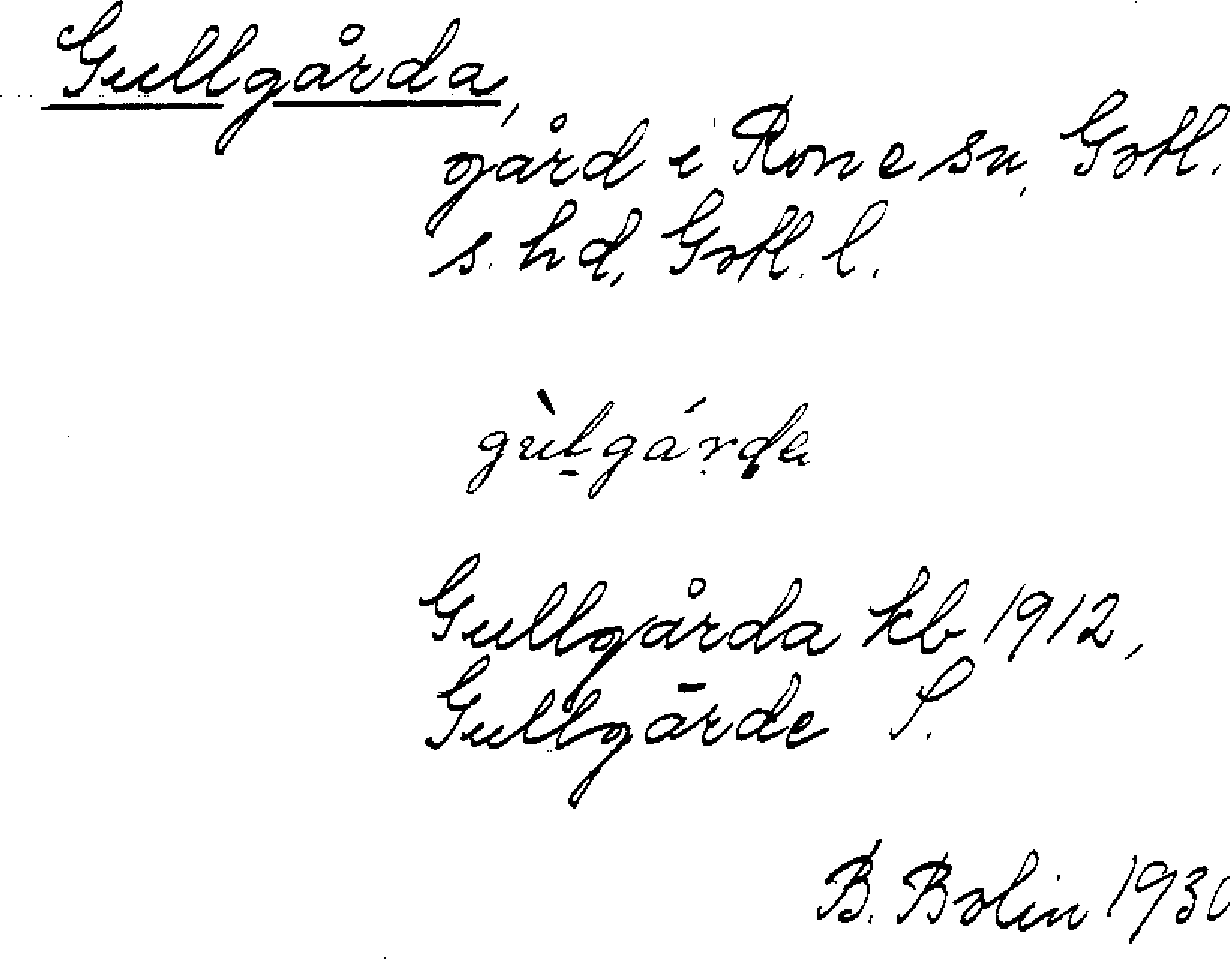 Gullgårda,
gård i Rone sn, Gotl.
s. hd, Gotl. l.
gùlgárda
Gullgårda kb 1912,
Gullgärde S.
B. Bolin 1930